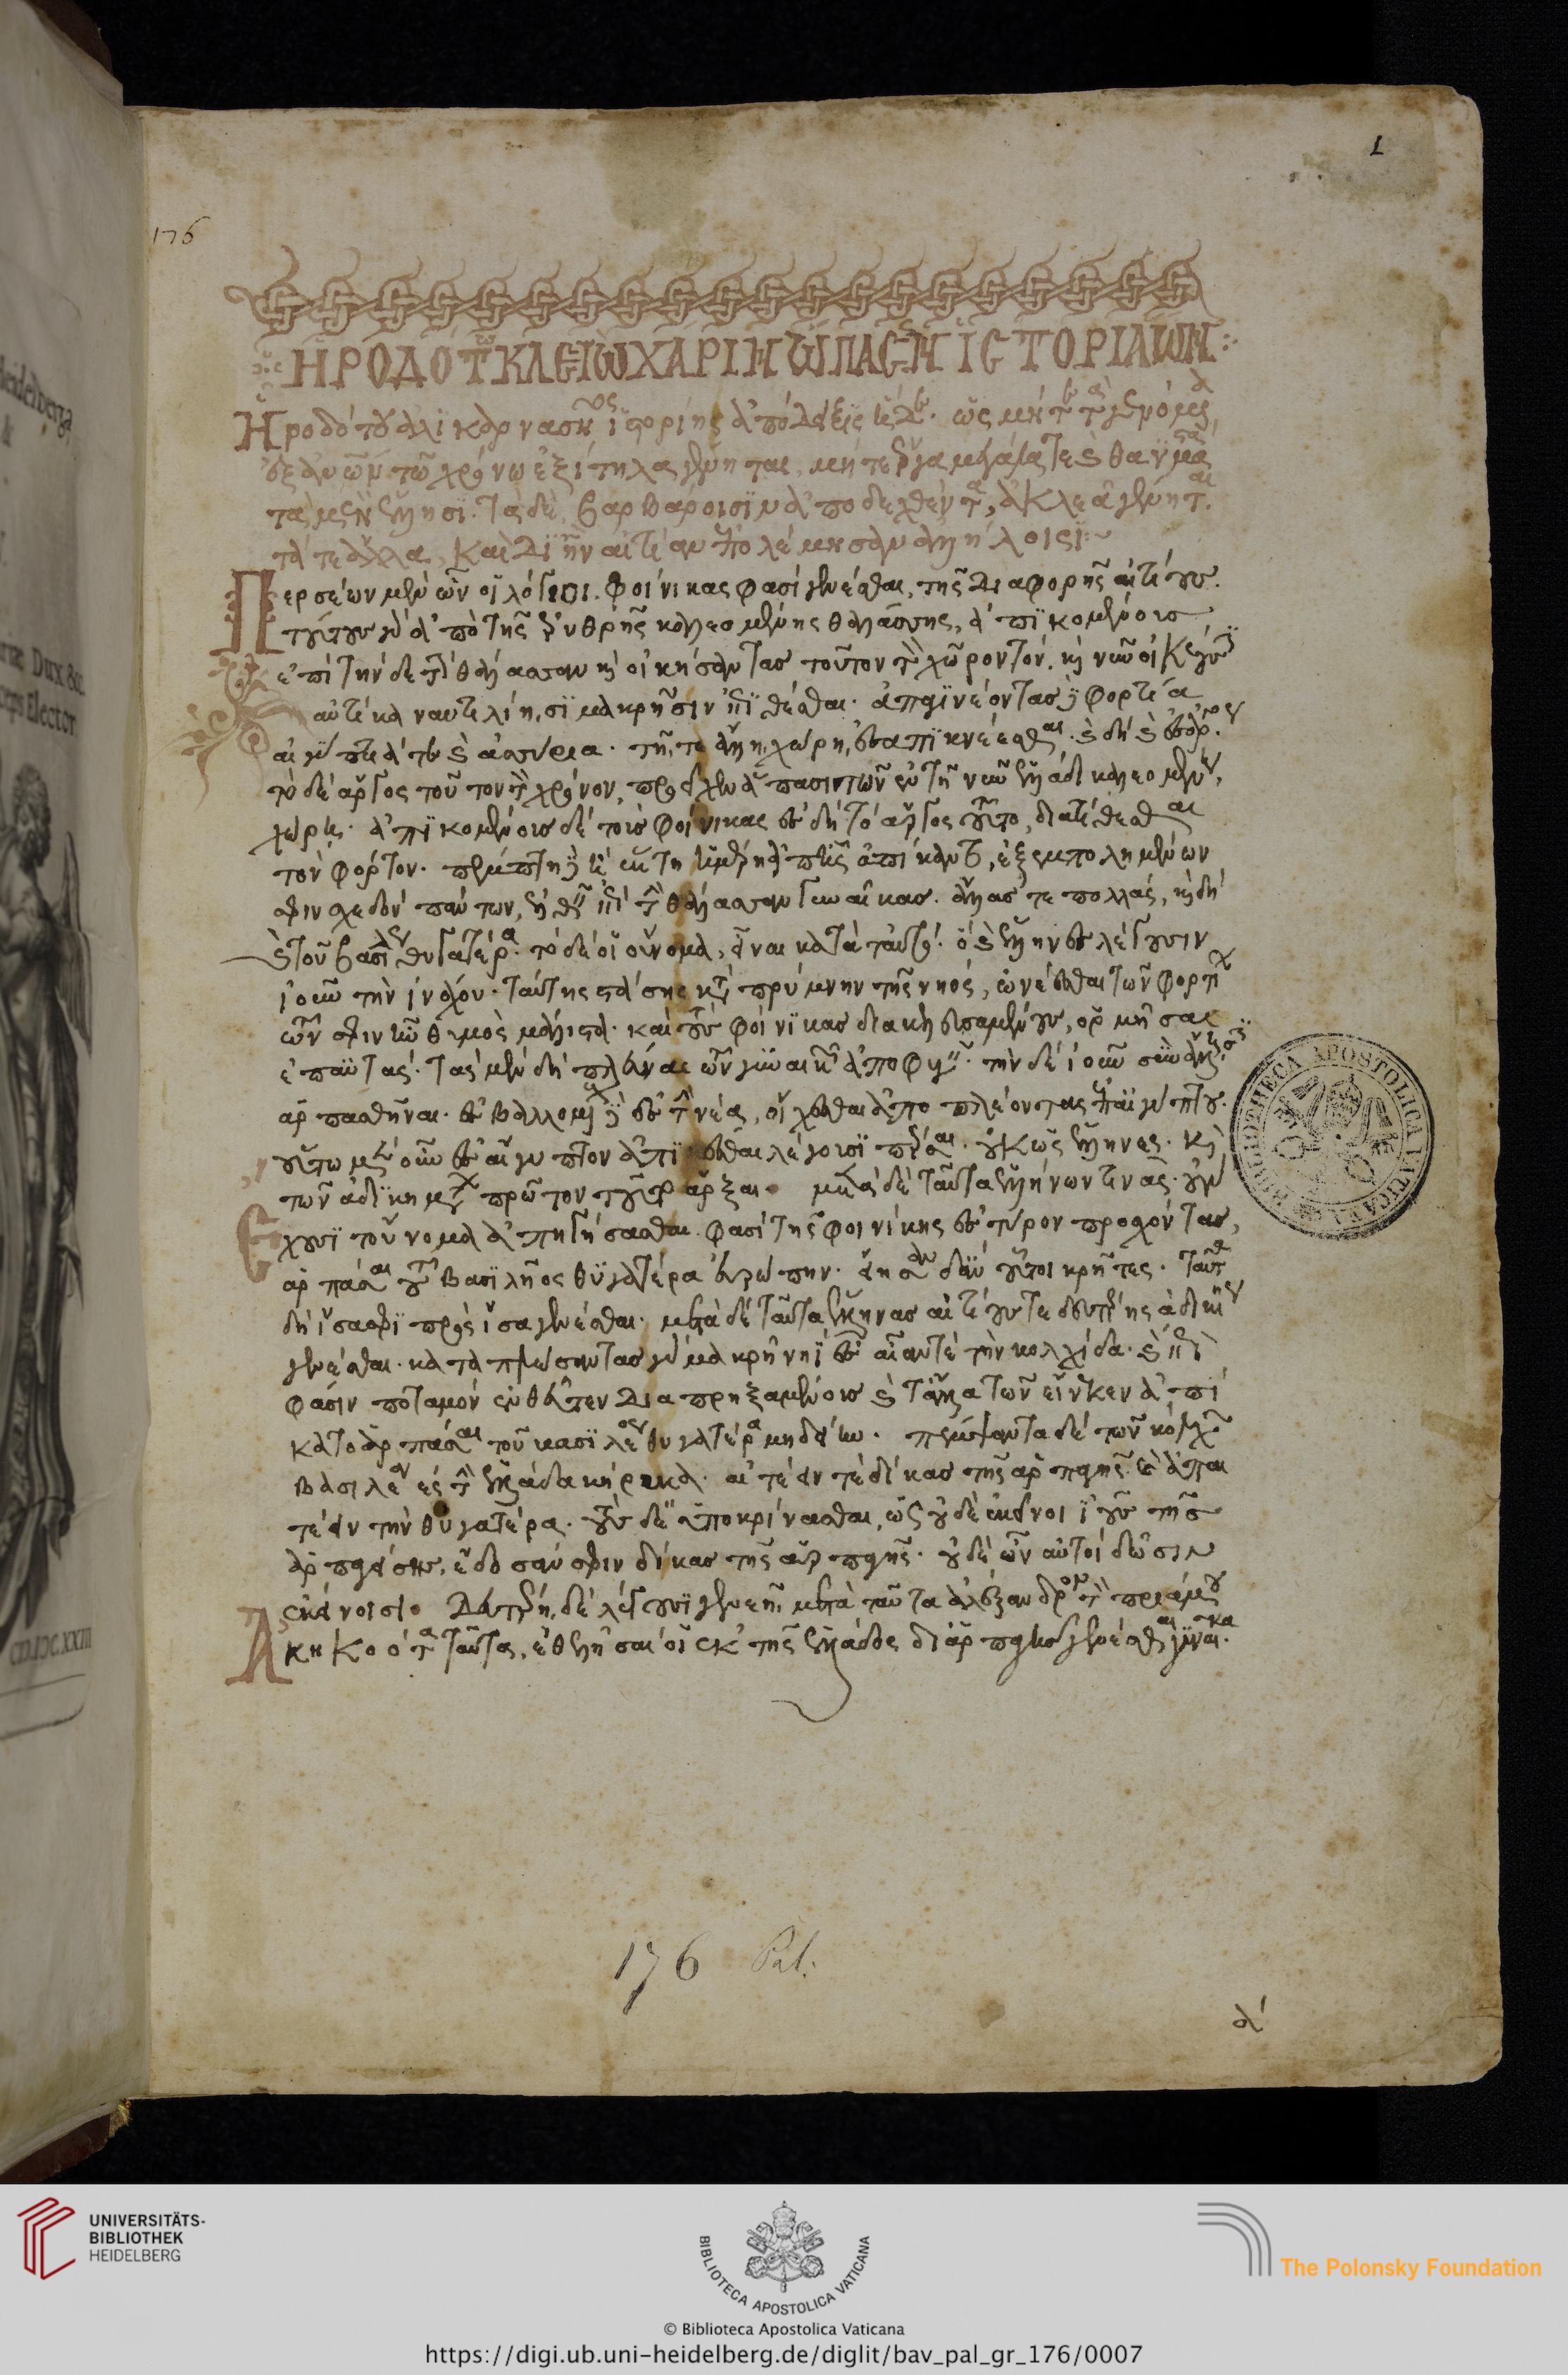 1
176
ἩΡΟΔΟΤ ΚΛΕΙΩ ΧΑΡΙΗ Ὢ ΠΑΣΗ ἹΣΤΟΡΙΑΩΝ
Ἡροδότου ἁλικαρνασ ἱστορίης ἀπόδεξις ὡς μήτε τὰ γενόμενα
ἐξ ἀνων τῶ χρόνω ἐξίτηλα γένηται, μήτε ἔργα μεγάλα τε καὶ θαυμα
τὰ μὲν ἕλλησι. τὰ δὲ βαρβάροισιν ἀποδεχθέντα, ἀκλεᾶ γένηται.
τά τε ἄλλα, καὶ δι ἣν αἰτίαν ἐπολέμησαν ἀλλήλοισι
Περσέων μὲν ὦν οἱ λόγιοι. φοίνικας φασὶ γενέσθαι, τῆς διαφορῆς αἰτίους.
τούτους γὰρ ἀπὸ τῆς ἐρυθρῆς καλεομένης θαλάσσης, ἀπικομένους
ἐπὶ τήνδε τὴν θάλασσαν καὶ οἰκήσαντας τοῦτον τὸν χῶρον τὸν καὶ νῦν οἰκέουσι
αὐτίκα ναυτιλίησι μακρῆσιν ἐπιθέσθαι. ἀπαγινέοντας δὲ φορτία
αἰγύπτιά τε καὶ ἀσσύρια. τῆ τε ἄλλη χώρη ἐσαπικνέεσθαι. καὶ δὴ καὶ ἐς ἄργος
τὸ δὲ ἄργος τοῦτον τὸν χρόνον, προεῖχεν ἅπασι τῶν ἐν τῆ νῦν ἑλλάδι καλεομένη
χώρη. ἀπικομένους δὲ τοὺς φοίνικας ἐς δὴ τὸ ἄργος τοῦτο, διατίθεσθαι
τὸν φόρτον. πέμπτη δὲ ἢ ἕκτη ἡμέρη ἀπ ἧς ἀπίκατο, ἐξεμπολημένων
σφιν σχεδὸν πάντων, ἐλθεῖν ἐπὶ τὴν θάλασσαν γυναῖκας. ἄλλας τε πολλάς, καὶ δὴ
καὶ τοῦ βασιλέος θυγατέρα. τὸ δέ οἱ οὔνομα, εἶναι κατὰ τωυτό. ὃ καὶ ἕλληνες λέγουσιν
ἰοῦν τὴν ἰνάχου. ταύτης στάσης κατὰ πρύμνην τῆς νηός, ὠνέεσθαι τῶν φορτίων
τῶν σφιν ἦν θυμὸς μάλιστα. καὶ τοὺς φοίνικας διακελευσαμένους, ὁρμῆσαι
ἐπ αὐτάς. τὰς μὲν δὴ πλεῦνας τῶν γυναικῶν ἀποφυγεῖν. τὴν δὲ ἰοῦν σὺν ἄλλησι
ἁρπασθῆναι. ἐσβαλλομένους δὲ ἐς τὴν νέα, οἴχεσθαι ἀποπλέοντας ἐπ αἰγύπτου.
οὕτω μὲν ἰοῦν ἐς αἴγυπτον ἀπικέσθαι λέγουσι πέρσαι. οὐκ ὡς ἕλληνες. καὶ
τῶν ἀδικημάτων πρῶτον τοῦτο ἄρξαι. μετὰ δὲ ταῦτα ἑλλήνων τινάς. οὐ γὰρ
ἔχουσι τοὔνομα ἀπηγήσασθαι. φασὶ τῆς φοινίκης ἐς τύρον προσχόντας,
ἁρπάσαι τοῦ βασιλῆος θυγατέρα εὐρώπην. εἴησαν δ ἂν οὗτοι κρῆτες. ταῦτα
δὴ ἴσα σφι πρὸς ἴσα γενέσθαι. μετὰ δὲ ταῦτα ἕλληνας αἰτίους τῆς δευτέρης ἀδικίης
γενέσθαι. καταπλώσαντας γὰρ μακρῆ νηὶ ἐς αἶάν τε τὴν κολχίδα. καὶ ἐπὶ
φᾶσιν ποταμὸν ἐνθεῦτεν διαπρηξαμένους καὶ τἄλλα τῶν εἵνεκεν ἀπί
κατο ἁρπάσαι τοῦ βασιλέος θυγατέρα μηδείην. πέμψαντα δὲ τῶν κόλχων
βασιλέα ἐς τὴν ἑλλάδα κήρυκα. αἰτέειν τε δίκας τῆς ἁρπαγῆς καὶ ἀπαι
τέειν τὴν θυγατέρα. τοὺς δὲ ὑποκρίνασθαι, ὡς οὐδὲ ἐκεῖνοι ἰοῦς τῆς
ἁργείης, ἔδοσάν σφιν δίκας τῆς ἁρπαγῆς. οὐδὲ ὦν αὐτοὶ δώσειν
ἐκείνοισι. δευτέρη δὲ λέγουσι γενεῆ μετὰ ταῦτα ἀλέξανδρον τὸν πριάμου
ἀκηκοότα ταῦτα, ἐθελῆσαί οἱ ἐκ τῆς ἑλλάδος δι ἁρπαγῆς γενέσθαι γυναῖκα.
176 Pal.
α΄
BIBLIOTHECA APOSTOLICA VATICANA
UNIVERSITÄTS-
BIBLIOTHEK
HEIDELBERG
BIBLIOTECA APOSTOLICA VATICANA
The Polonsky Foundation
© Biblioteca Apostolica Vaticana
https://digi.ub.uni-heidelberg.de/diglit/bav_pal_gr_176/0007